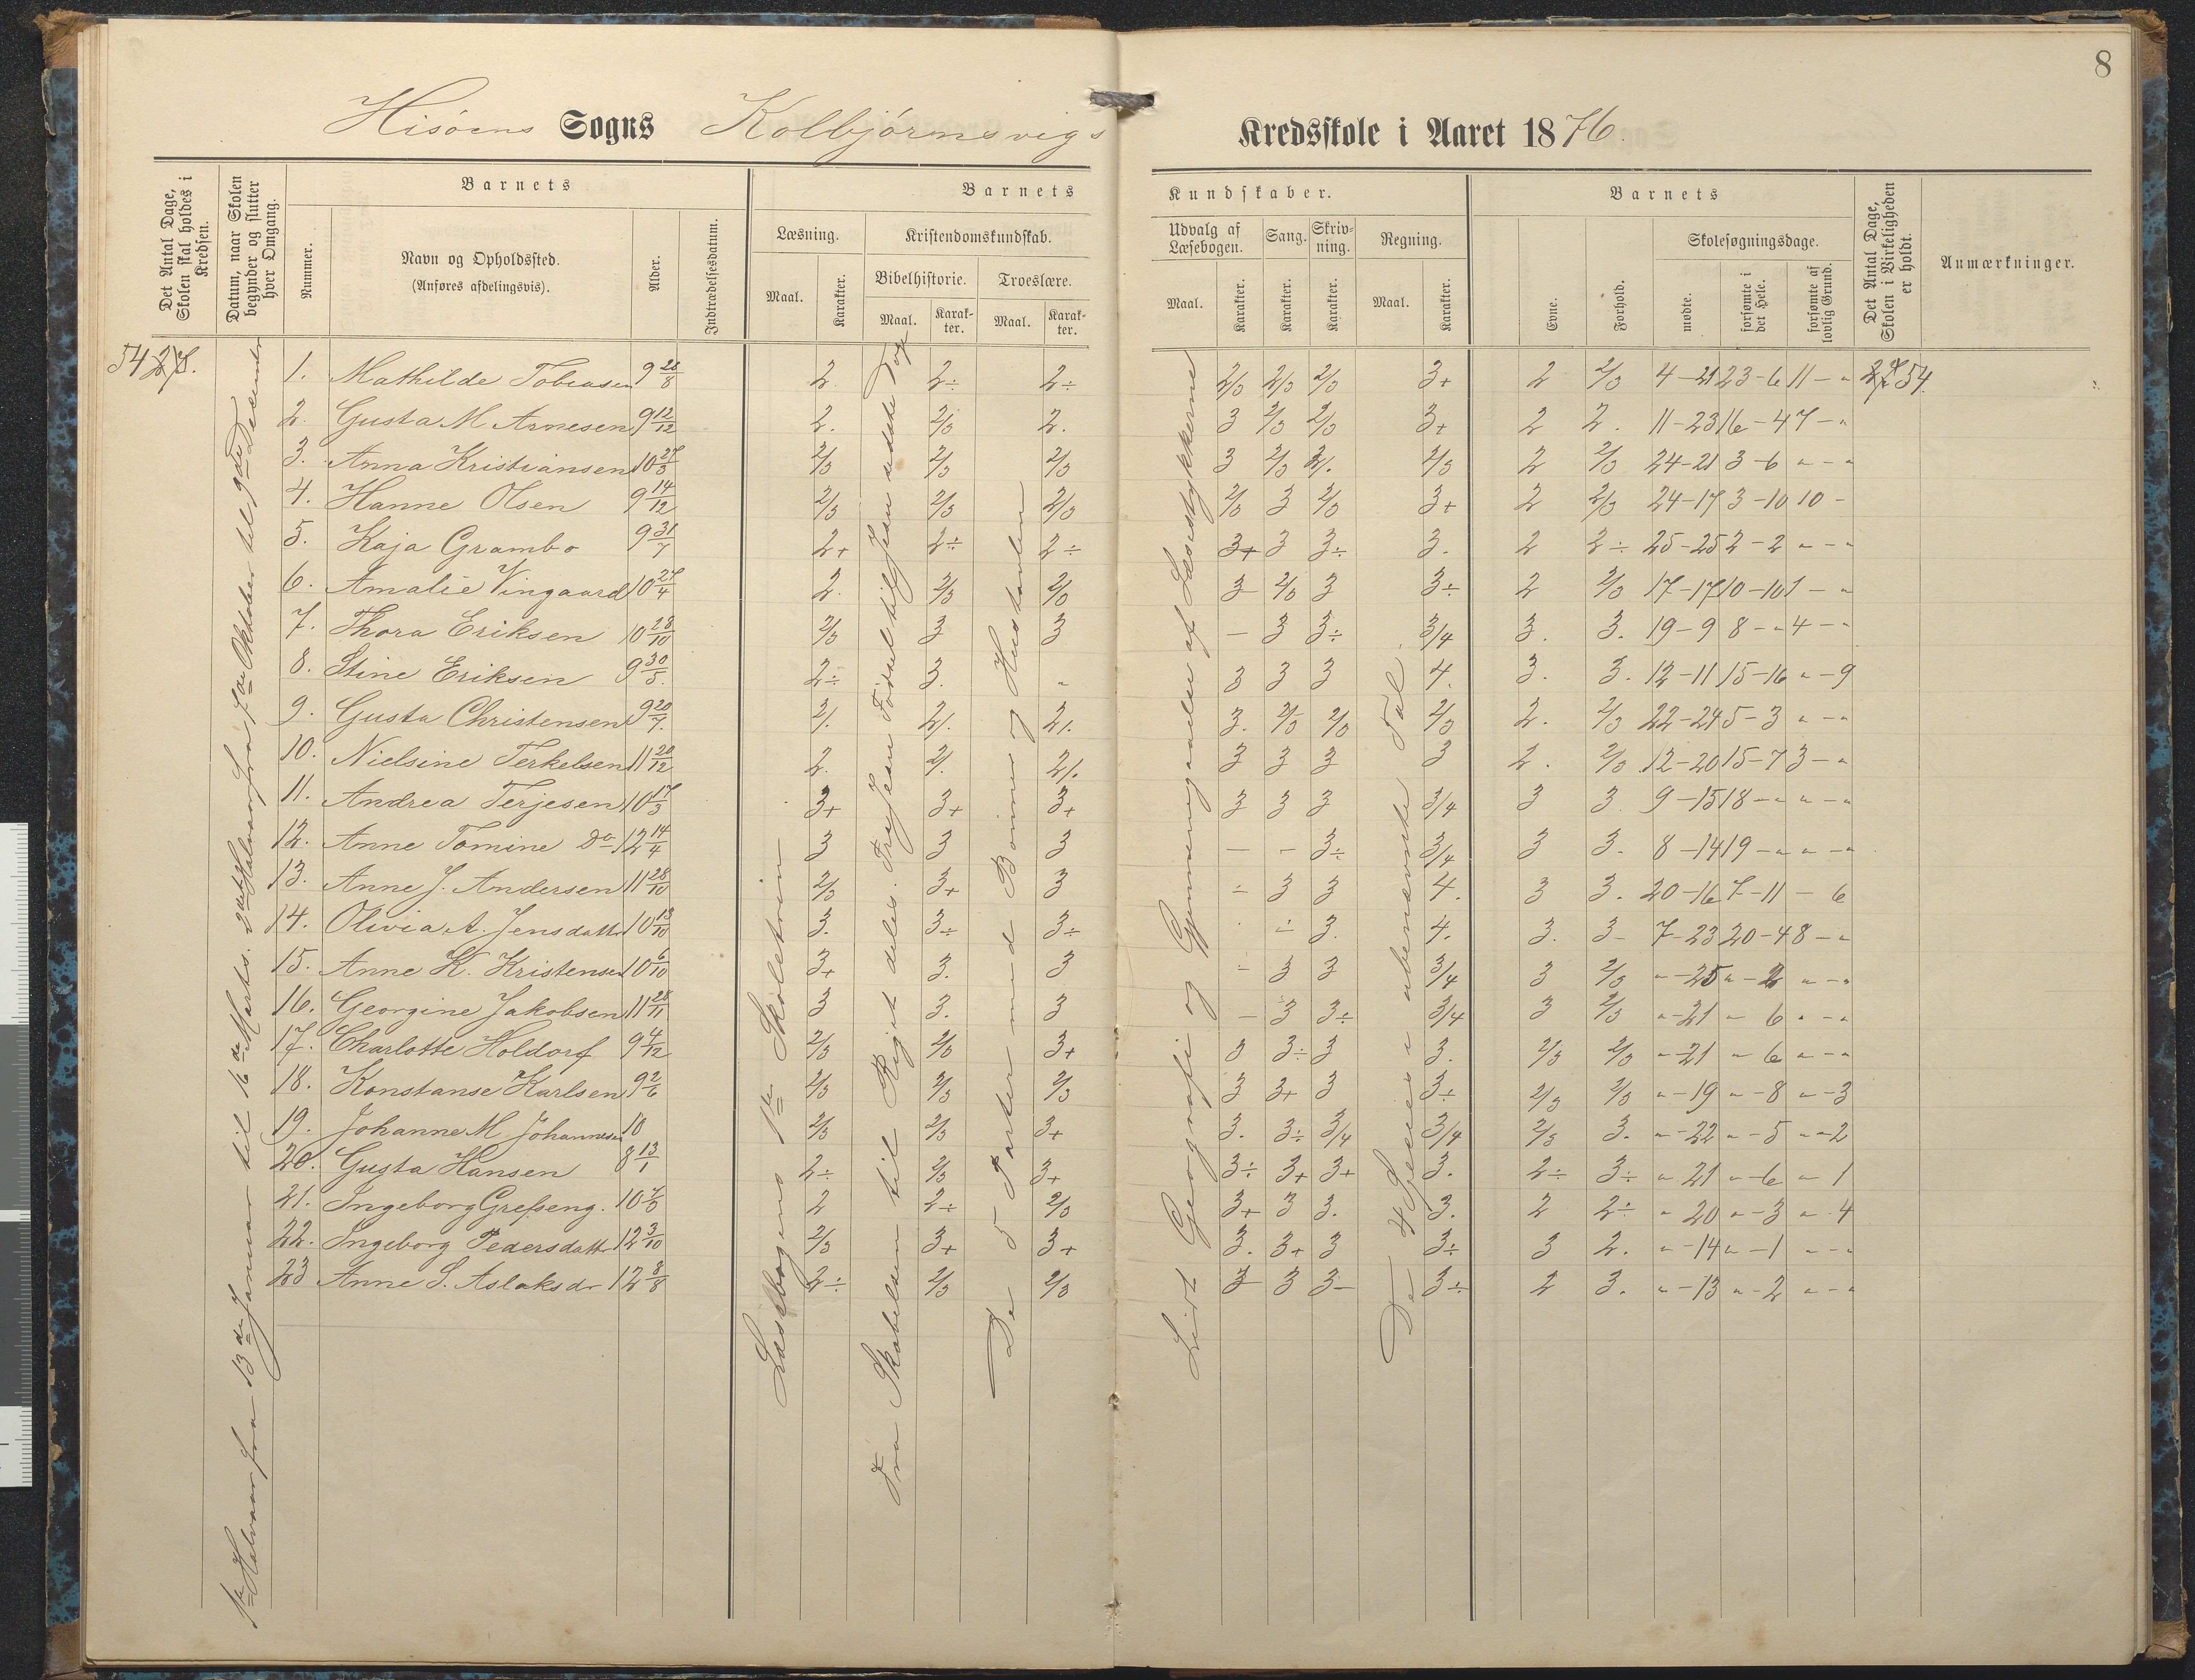 8
Hisøens Sogns Kolbjørnsvigs Kredsskole i Aaret 1876.
Det Antal Dage, Skolen skal holdes i Kredsen.
Datum, naar Skolen begynder og slutter hver Omgang.
Barnets
Nummer.
Navn og Opholdssted.
(Anføres afdelingsvis).
Alder.
Indtrædelsesdatum.
Barnets Kundskaber.
Læsning.
Maal.
Karakter.
Kristendomskundskab.
Bibelhistorie.
Maal.
Karakter.
Troeslære.
Maal.
Karakter.
Udvalg af Læsebogen.
Maal.
Karakter.
Sang.
Karakter.
Skrivning.
Karakter.
Regning.
Maal.
Karakter.
Barnets
Evne.
Forhold.
Skolesøgningsdage.
mødte.
forsømte i det Hele.
forsømte af lovlig Grund.
Det Antal Dage, Skolen i Virkeligheden er holdt.
Anmærkninger.
54 27.
1ste Halvaar fra 13de Januar til 16de Marts. 2det Halvaar fra 7de Oktober til 9de Decembr
Læsebogens 1ste Skoletrin
Fra Skabelsen til Riget deles. Fra Jesu Fødsel til Jesu sidste Dage
De 5 Parter med Bønner og Hustavlen
Lidt Geografi og Gjennemgaaelse af Læsestykkerne
De 4 Species i ubenævnte Tal.
1. Mathilde Tobiasen 9 28/8 2. 2÷ 2÷ 2/3 2/3 2/3 3+ 2 2/3 4-21 23-6 11-" 27 54.
2. Gusta M Arnesen 9 12/12 2. 2/3 2. 3 2/3 2/3 3+ 2 2. 11-23 16-4 7-"
3. Anna Kristiansen 10 27/3 2/3 2/3 2/3 3 2/3 2/. 2/3 2 2/3 24-21 3-6 "-"
4. Hanne Olsen 9 14/12 2/3 2/3 2/3 2/3 3 2/3 3+ 2 2/3 24-17 3-10 10-
5. Kaja Grambo 9 31/7 2+ 2÷ 2÷ 3+ 3 3÷ 3. 2 2÷ 25-25 2-2 "-"
6. Amalie Vingaard 10 27/4 2. 2/3 2/3 3 2/3 3 3÷ 2 2/3 17-17 10-10 1-"
7. Thora Eriksen 10 28/10 2/3 3 3 - 3 3÷ 3/4 3. 3. 19-9 8-" 4-"
8. Stine Eriksen 9 30/5 2÷ 3. " 3 3 3 4. 3. 3. 12-11 15-16 "-9
9. Gusta Christensen 9 20/7. 2/. 2/. 2/. 3. 2/3 2/3 2/3 2. 2/3 22-24 5-3 "-"
10. Nielsine Terkelsen 11 20/12 2. 2/. 2/. 3 3 3 3 2. 2/3 12-20 15-7 3-"
11. Andrea Terjesen 10 17/3 3+ 3+ 3+ 3 3 3 3/4 3 3. 9-15 18-" "-"
12. Anne Tomine Do 12 14/4 3 3 3 - - 3÷ 3/4 3 3. 8-14 19-" "-"
13. Anne J. Andersen 11 28/10 2/3 3+ 3 ÷ 3 3 4. 3 3. 20-16 7-11 - 6
14. Olivia A. Jensdattr 10 13/10 3. 3÷ 3÷ ÷ 3. 4. 3. 3- 7-23 20-4 8-"
15. Anne K. Kristensen 10 6/10 3+ 3. 3 ÷ 3 3 3/4 3 2/3 "-25 "-2 "-"
16. Georgine Jakobsen 11 28/11 3 3. 3 - 3 3÷ 3/4 3 2/3 "-21 - 6 "-"
17. Charlotte Holdorf 9 4/12 2/3 2/3 3+ 3 3÷ 3 3. 2/3 2/3 "-21 - 6 "-"
18. Konstanse Karlsen 9 2/6 2/3 2/3 2/3 3 3+ 3 3÷ 2/3 2/3 "-19 "-8 "-3
19. Johanne M Johannesen 10 2/3 2/3 3+ 3. 3÷ 3/4 3/4 2/3 3. "-22 "-5 "-2
20. Gusta Hansen 8 13/1 2÷ 2/3 3+ 3÷ 3+ 3+ 3. 2÷ 3÷ "-21 "-6 "-1
21. Ingeborg Gresseng. 10 7/3 2 2÷ 2/3 3+ 3 3. 3. 2 2÷ "-20 "-3 "-4
22. Ingeborg Pedersdattr 12 3/10 2/3 3+ 3+ 3. 3+ 3 3÷ 3 2. "-14 "-1 "-"
23 Anne S. Aslaksdr 12 3/8 2÷ 2/3 2/3 3 3 3- 3÷ 2 3. "-13 "-2 "-"